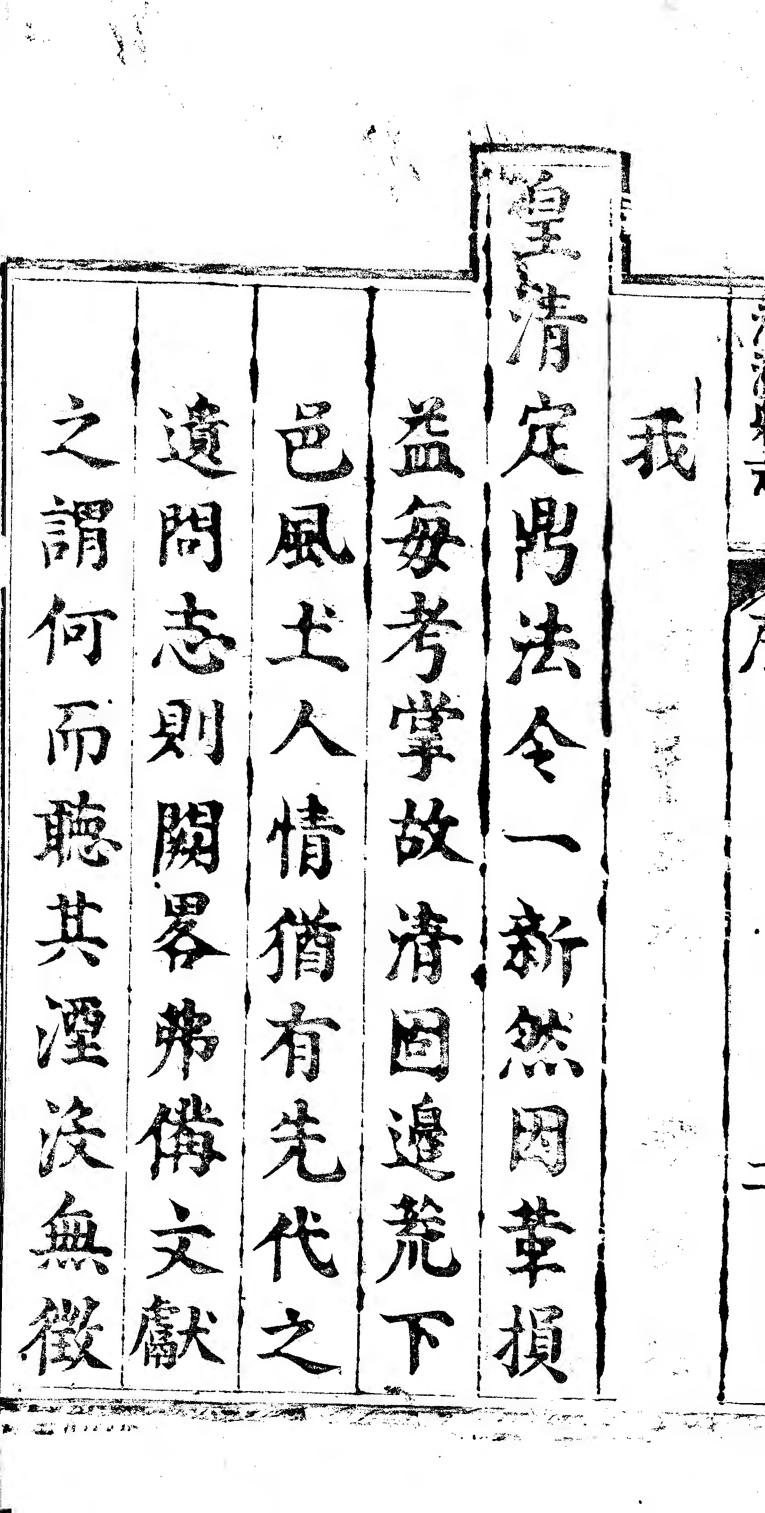 我
皇清定鼎法令一新然因革損
益每考掌故清固邉荒下
邑風土人情猶有先代之
遺問志則闕畧弗備文獻
之謂何而聴其湮没無徵